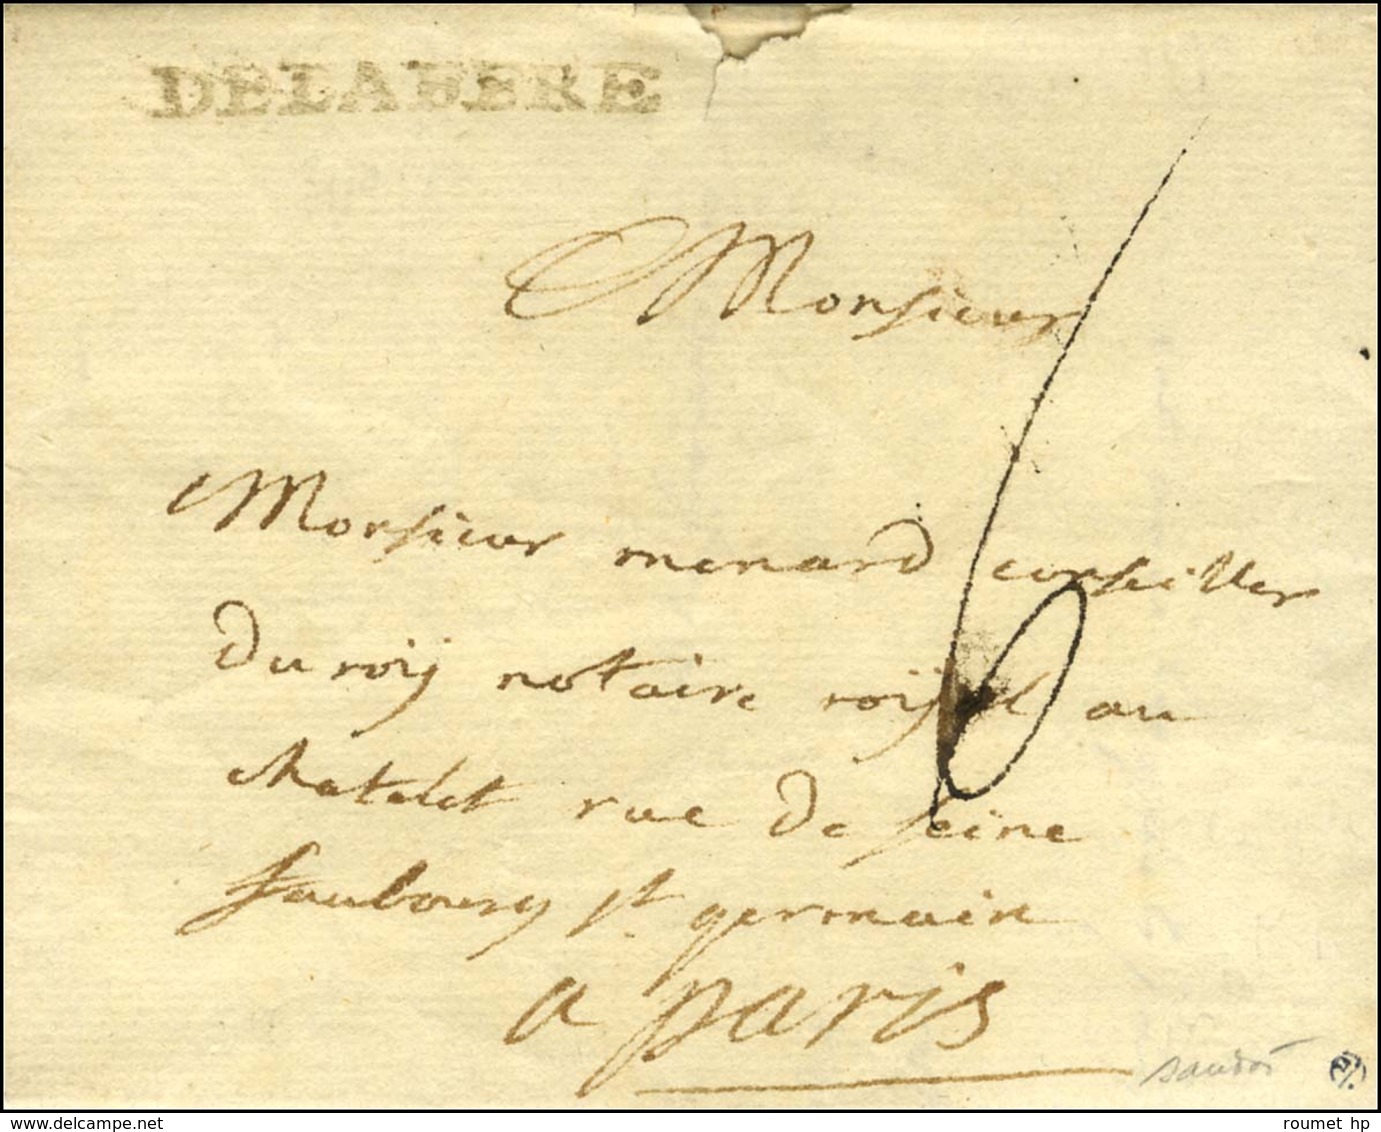 DELAFERE
Monsieur
6
Monsieur menard conseiller
du roij notaire roijal au
chatelet rue de seine
faubourg st. germain
a paris
roumet hp